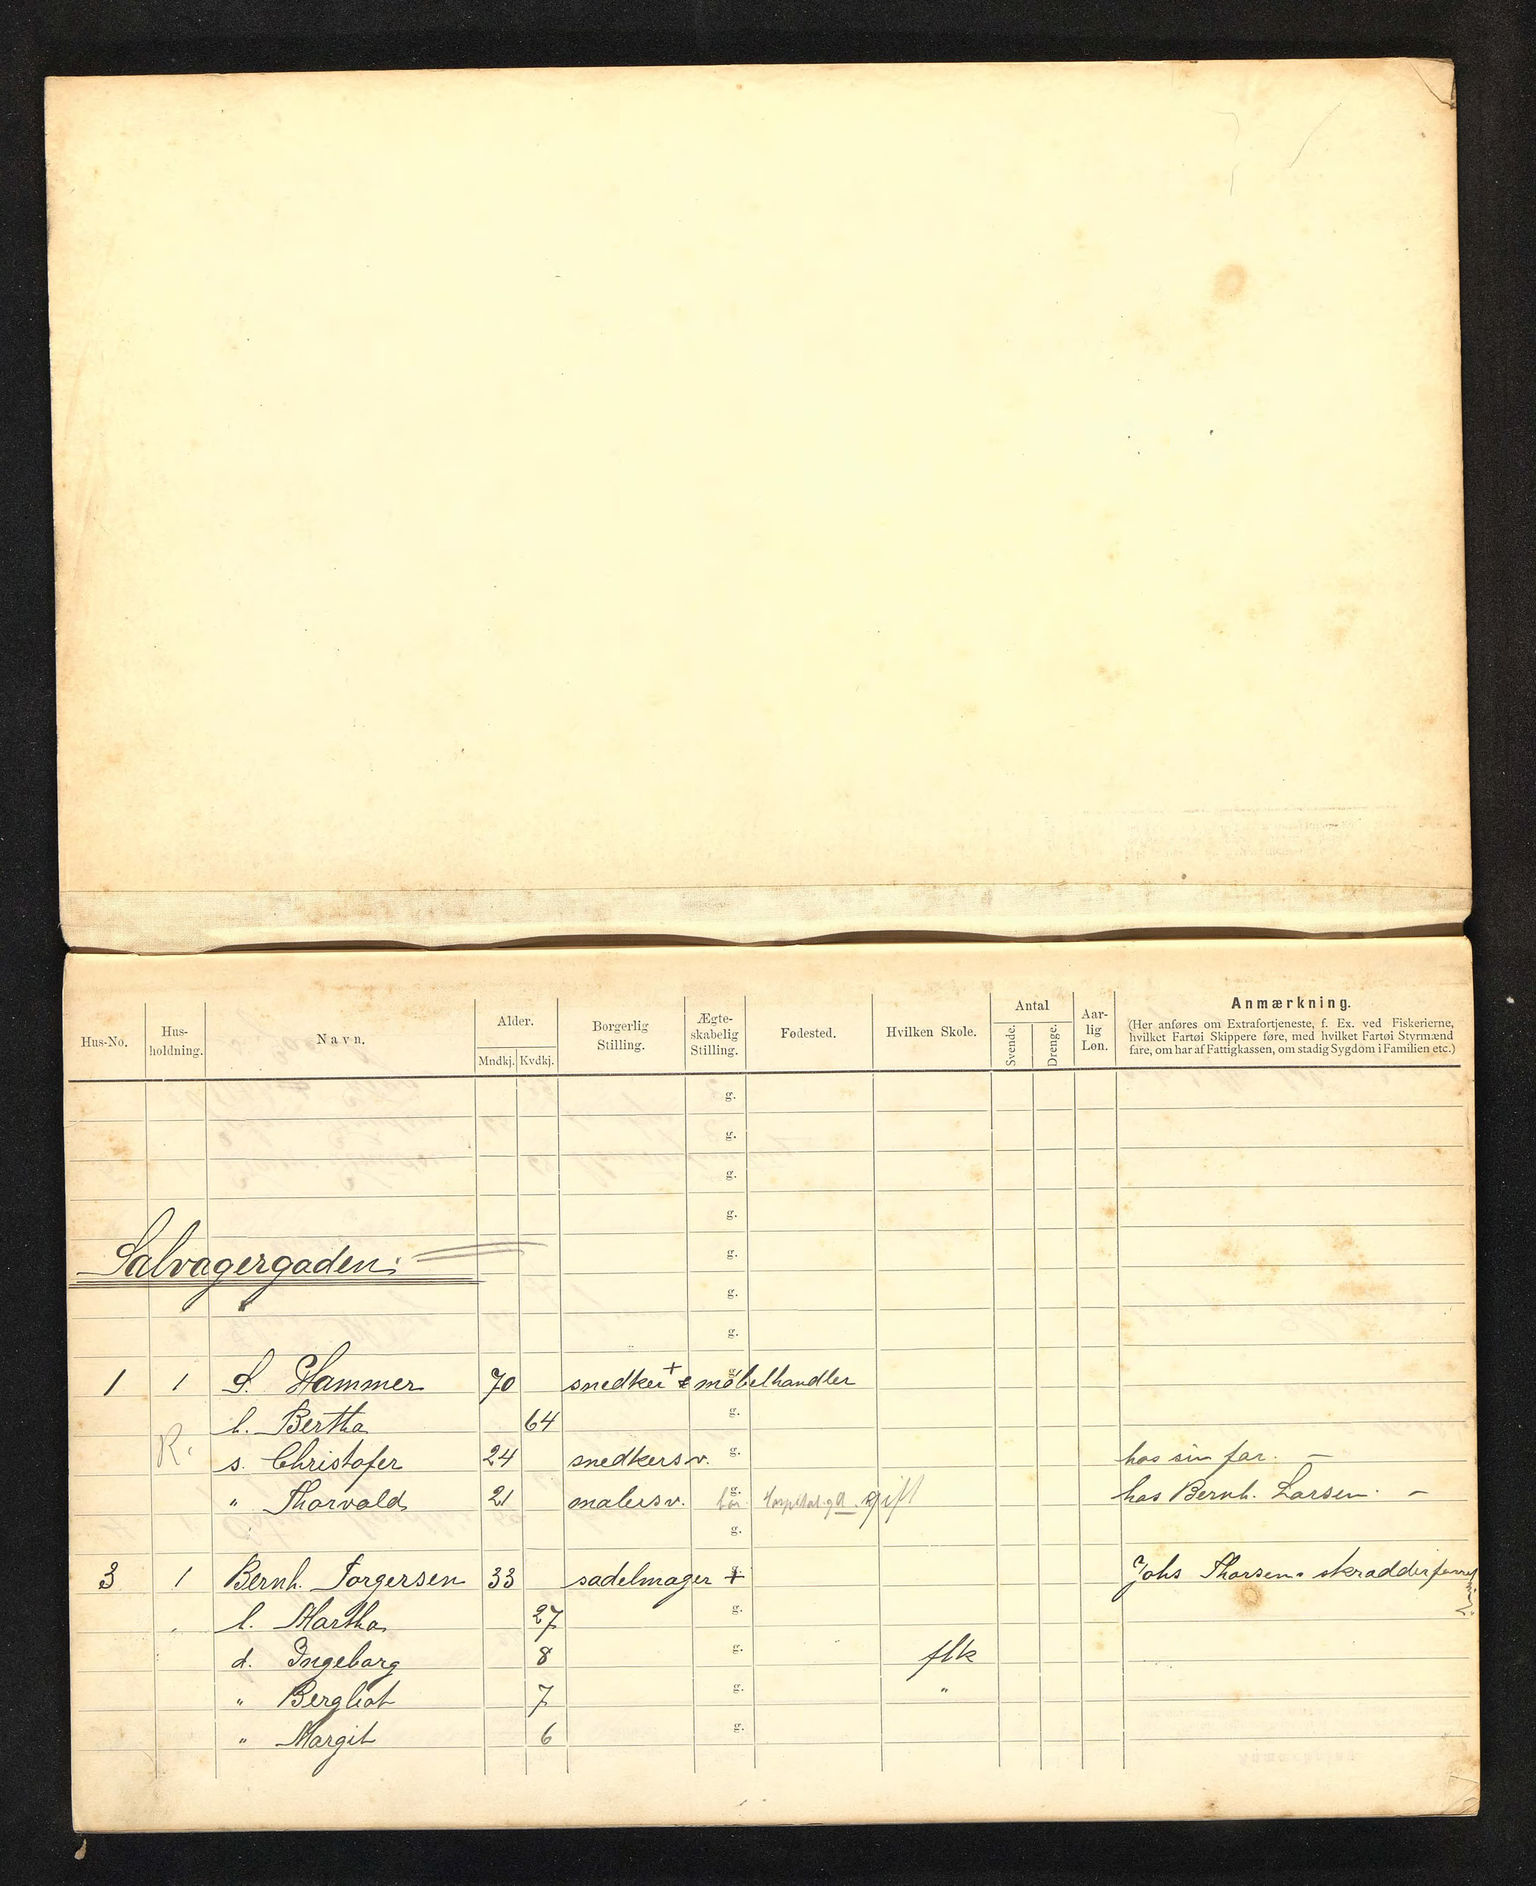 Hus-No. Hus-holdning. Navn. Alder. Mndkj. Kvdkj. Borgerlig Stilling. Ægte-skabelig Stilling. Fødested. Hvilken Skole. Antal Svende. Drenge. Aar-lig Løn. Anmærkning.
(Her anføres om Extrafortjeneste, f. Ex. ved Fiskerierne,
hvilket Fartøi Skippere føre, med hvilket Fartøi Styrmænd
fare, om har af Fattigkassen, om stadig Sygdom i Familien etc.)
g.
g.
g.
g.
Salvagergaden: g.
g.
g.
1 1 S. Hammer 70 snedker + & møbelhandler g.
h. Bertha 64 g.
R. s. Christofer 24 snedkersv. g. hos sin far. —
" Thorvald 21 malersv. g. bor Hospitalsgd. gift hos Bernh. Larsen. —
g.
3 1 Bernh. Torgersen 33 sadelmager + g. Johs Thorsen
h. Martha 27 g.
d. Ingeborg 8 g. flk
" Bergliot 7 g. "
" Margit 6 g.